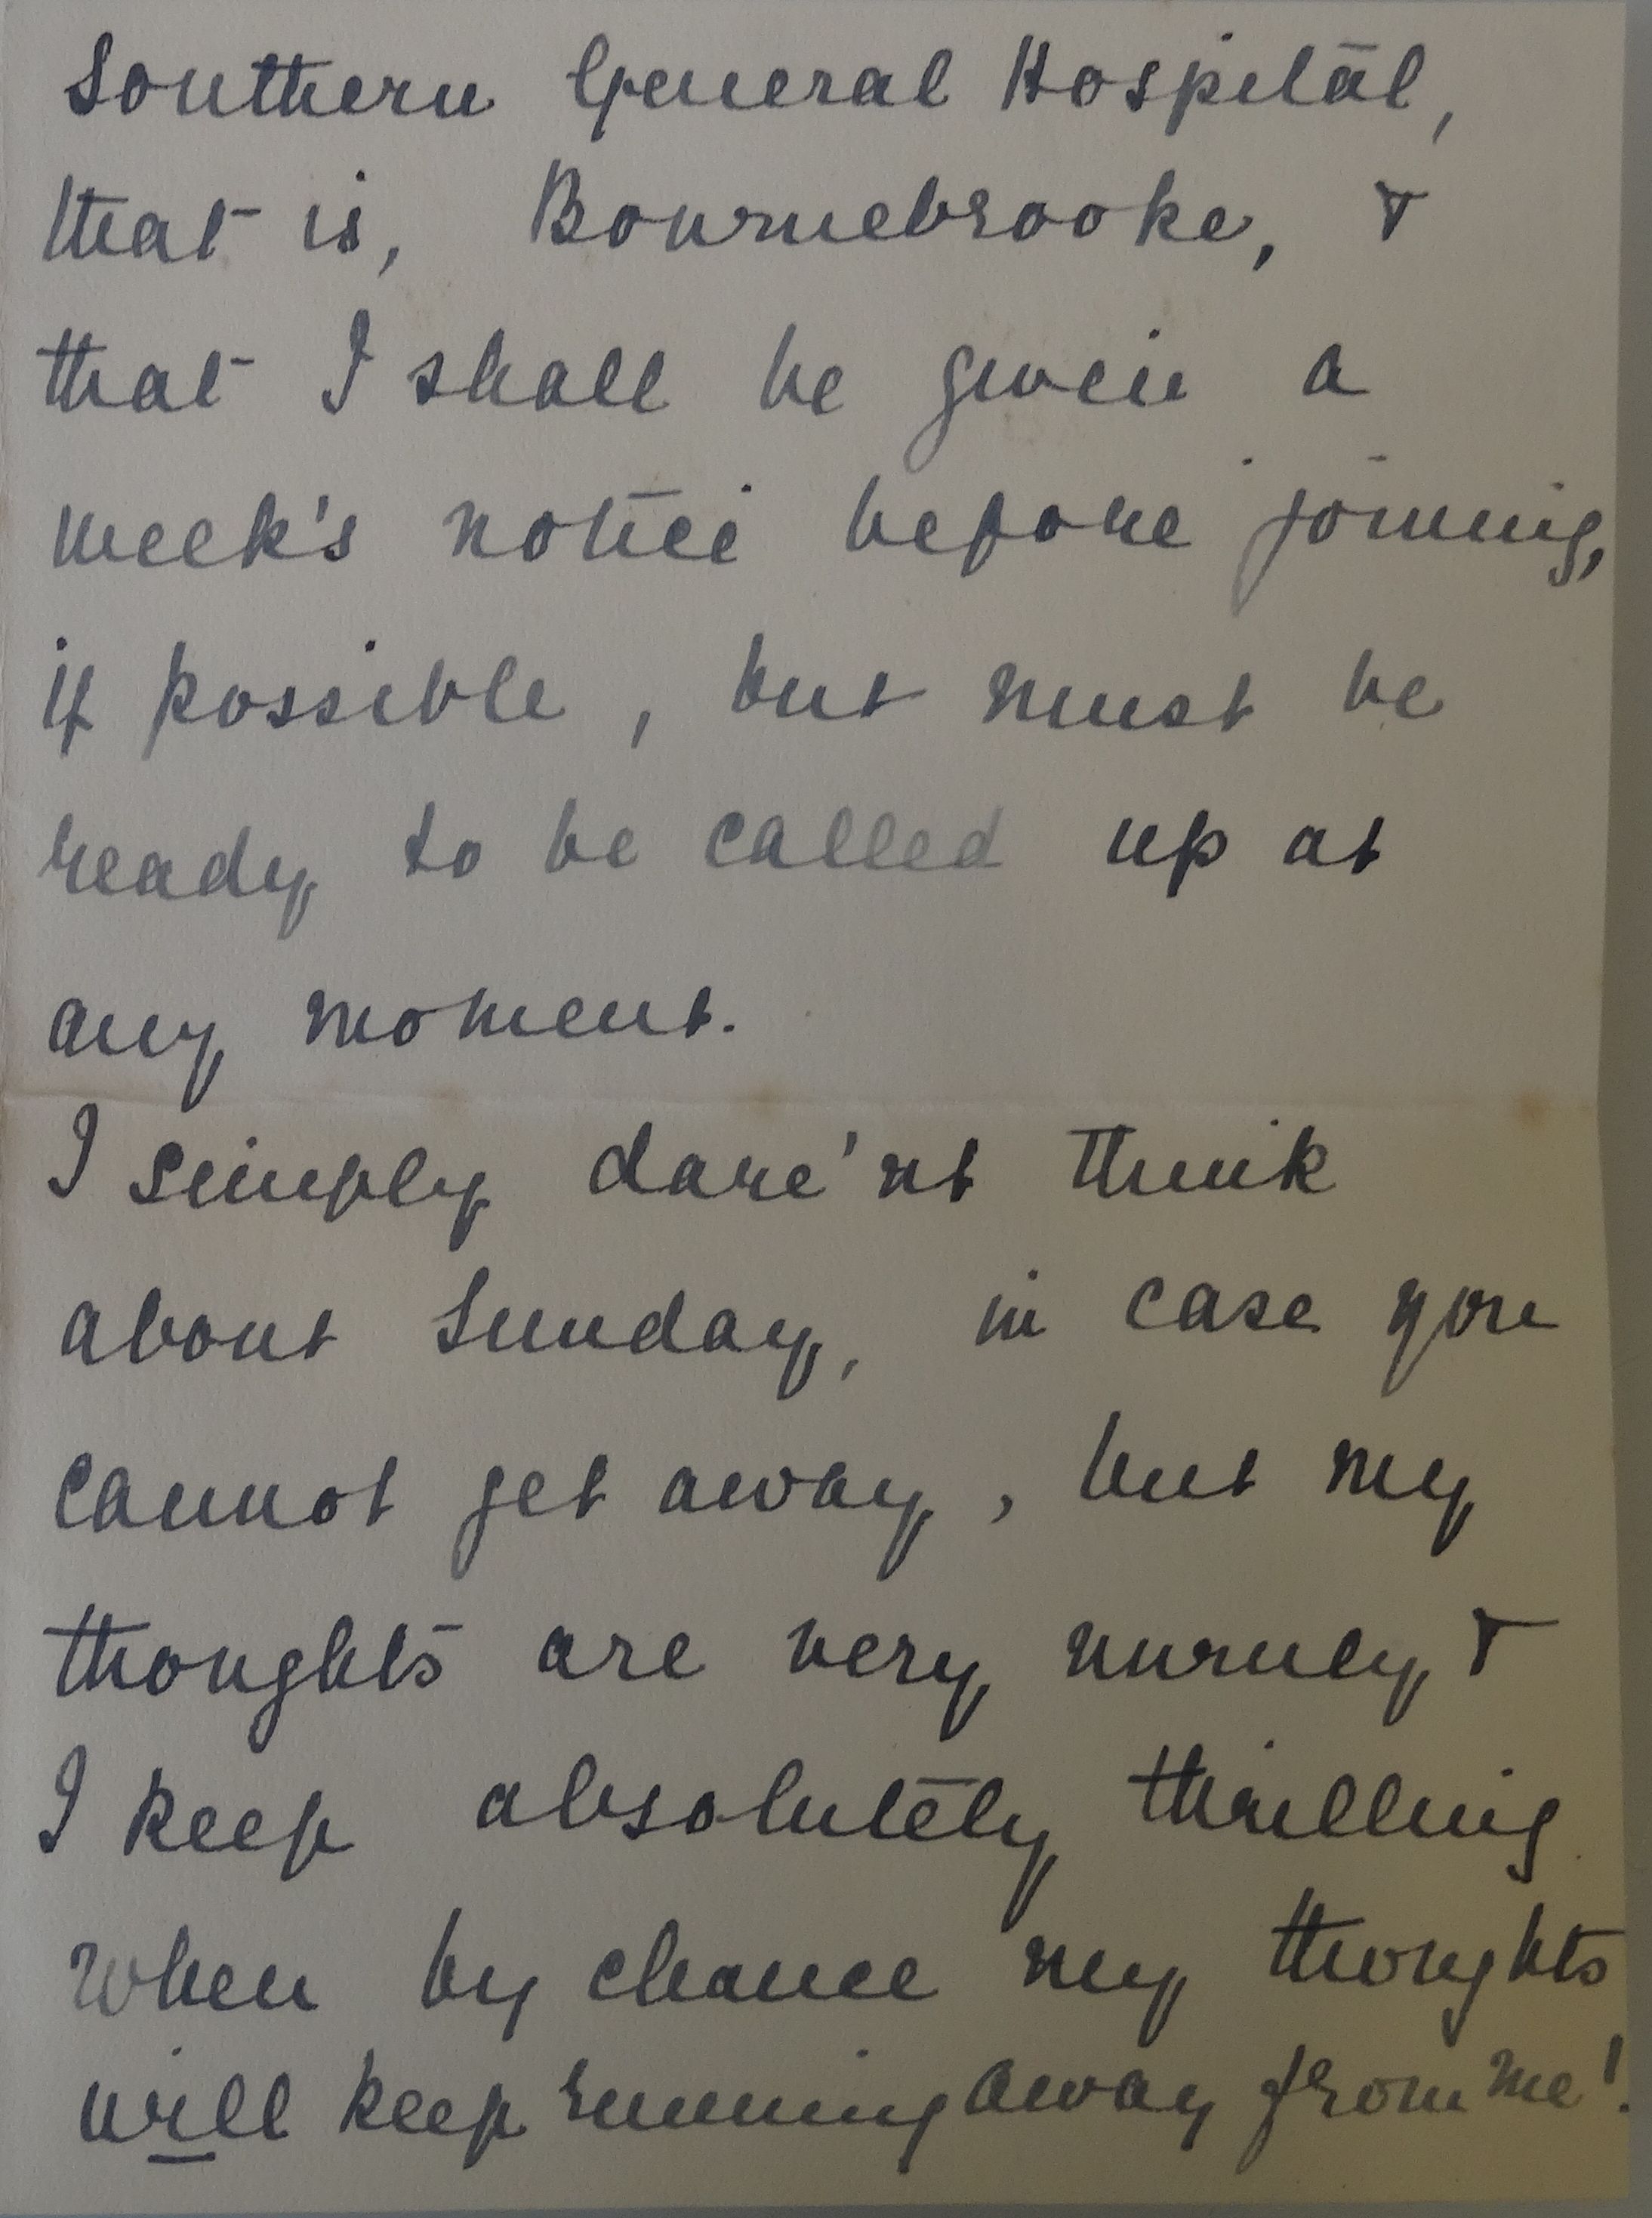 Southern General Hospital,
that is, Bournebrooke, &
that I shall be given a
week's notice before joining,
if possible, but must be
ready to be called up at
any moment.
I simply dare'nt think
about Sunday, in case you
cannot get away, but my
thoughts are very unruly &
I keep absolutely thrilling
when by chance my thoughts
will keep running away from me!